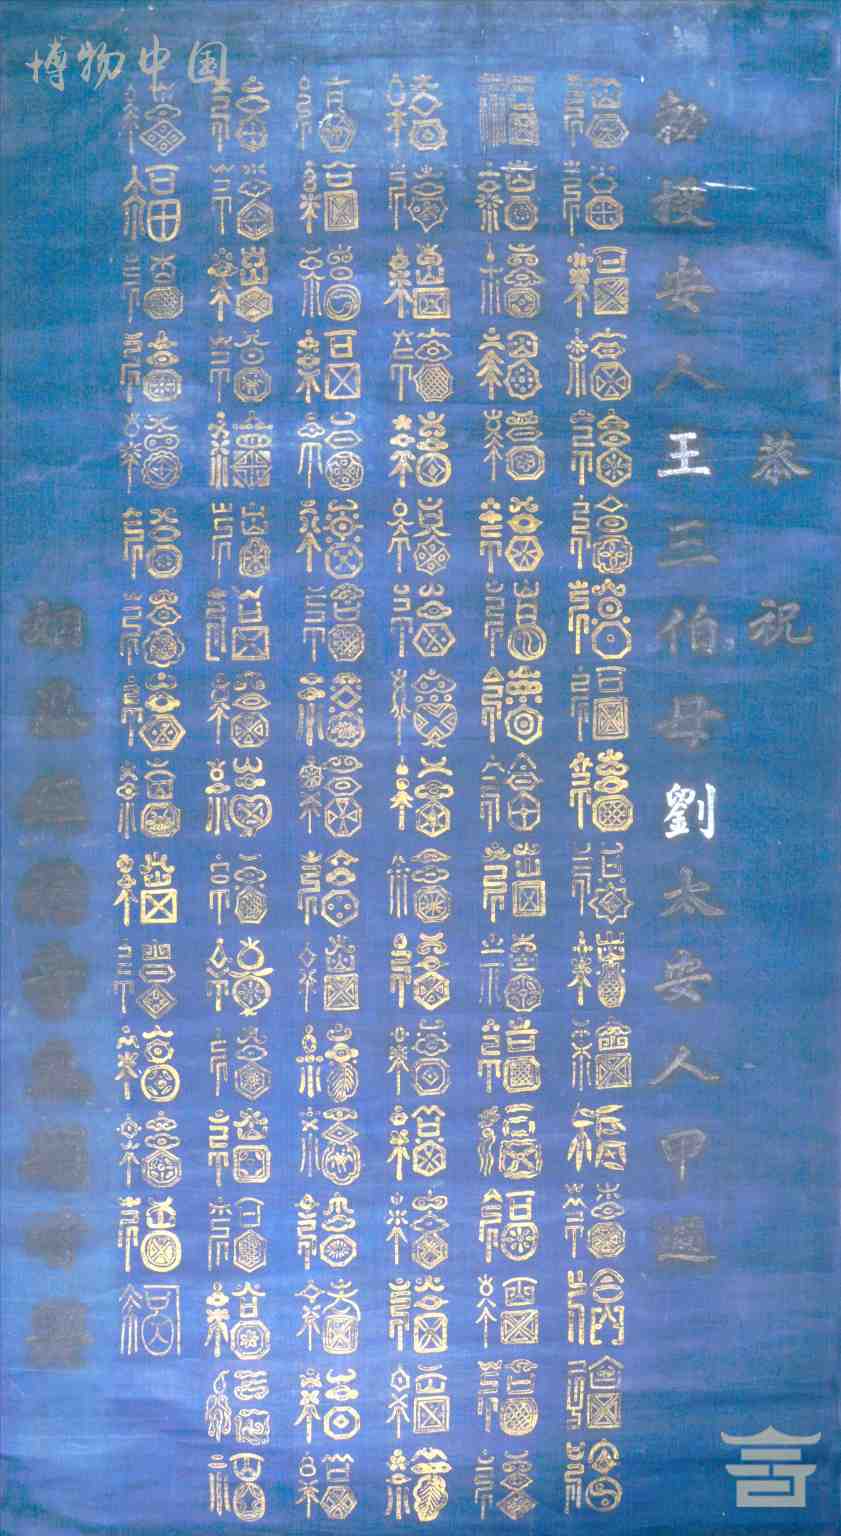 博物中国
恭祝
勅授安人王三伯母劉太安人甲週
福福福福福福福福福福福福福福福福福
福福福福福福福福福福福福福福福福福
福福福福福福福福福福福福福福福福福
福福福福福福福福福福福福福福福福福
福福福福福福福福福福福福福福福福福
福福福福福福福福福福福福福福福